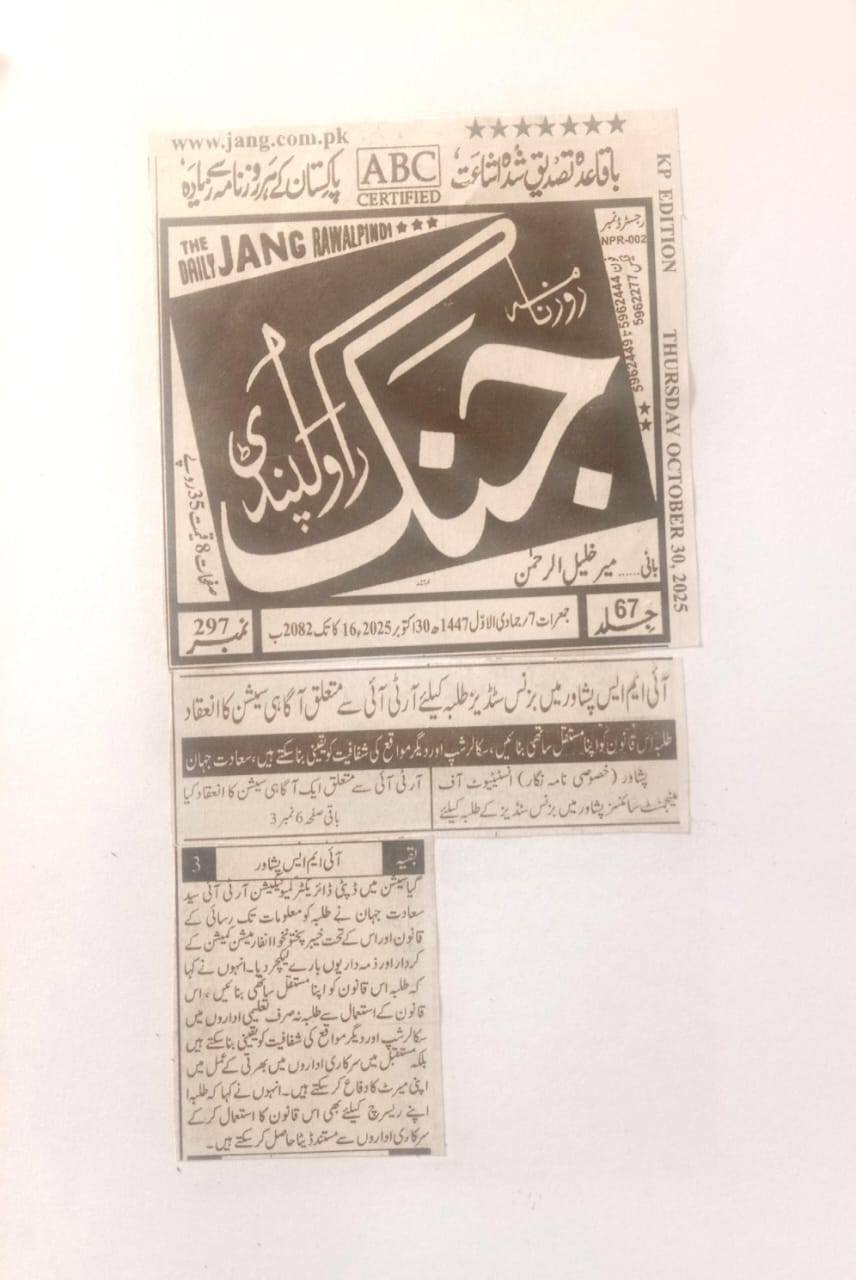 www.jang.com.pk
★★★★★★★
پاکستان کے ہر روزنامہ سے زیادہ، ABC CERTIFIED باقاعدہ تصدیق شدہ اشاعت
THE DAILY JANG RAWALPINDI ★★★
رجسٹرڈ نمبر
NPR-002
فون 5962444 5962449
فیکس 5962277
KP EDITION THURSDAY OCTOBER 30, 2025
روزنامہ
جنگ
راولپنڈی
صفحات 8 قیمت 35 روپے
بانی ..... میر خلیل الرحمٰن
جلد 67
جمعرات 7/جمادی الاوّل 1447ھ 30 اکتوبر 2025ء 16 کاتک 2082ب
نمبر 297
آئی ایم ایس پشاور میں بزنس سٹڈیز طلبہ کیلئے آر ٹی آئی سے متعلق آگاہی سیشن کا انعقاد
طلبہ اس قانون کو اپنا مستقل ساتھی بنائیں، سکالرشپ اور دیگر مواقع کی شفافیت کو یقینی بنا سکتے ہیں، سعادت جہان
پشاور (خصوصی نامہ نگار) انسٹیٹیوٹ آف
مینجمنٹ سائنسز پشاور میں بزنس سٹڈیز کے طلبہ کیلئے
آر ٹی آئی سے متعلق ایک آگاہی سیشن کا انعقاد کیا
باقی صفحہ 6 نمبر 3
بقیہ آئی ایم ایس پشاور 3
گیا سیشن میں ڈپٹی ڈائریکٹر کمیونیکیشن آر ٹی آئی سید
سعادت جہان نے طلبہ کو معلومات تک رسائی کے
قانون اور اس کے تحت خیبر پختونخوا انفارمیشن کمیشن کے
کردار اور ذمہ داریوں بارے لیکچر دیا۔ انہوں نے کہا
کہ طلبہ اس قانون کو اپنا مستقل ساتھی بنائیں، اس
قانون کے استعمال سے طلبہ نہ صرف تعلیمی اداروں میں
سکالرشپ اور دیگر مواقع کی شفافیت کو یقینی بنا سکتے ہیں
بلکہ مستقبل میں سرکاری اداروں میں بھرتی کے عمل میں
اپنی میرٹ کا دفاع کر سکتے ہیں۔ انہوں نے کہا کہ طلبا
اپنے ریسرچ کیلئے بھی اس قانون کا استعمال کر کے
سرکاری اداروں سے مستند ڈیٹا حاصل کر سکتے ہیں۔